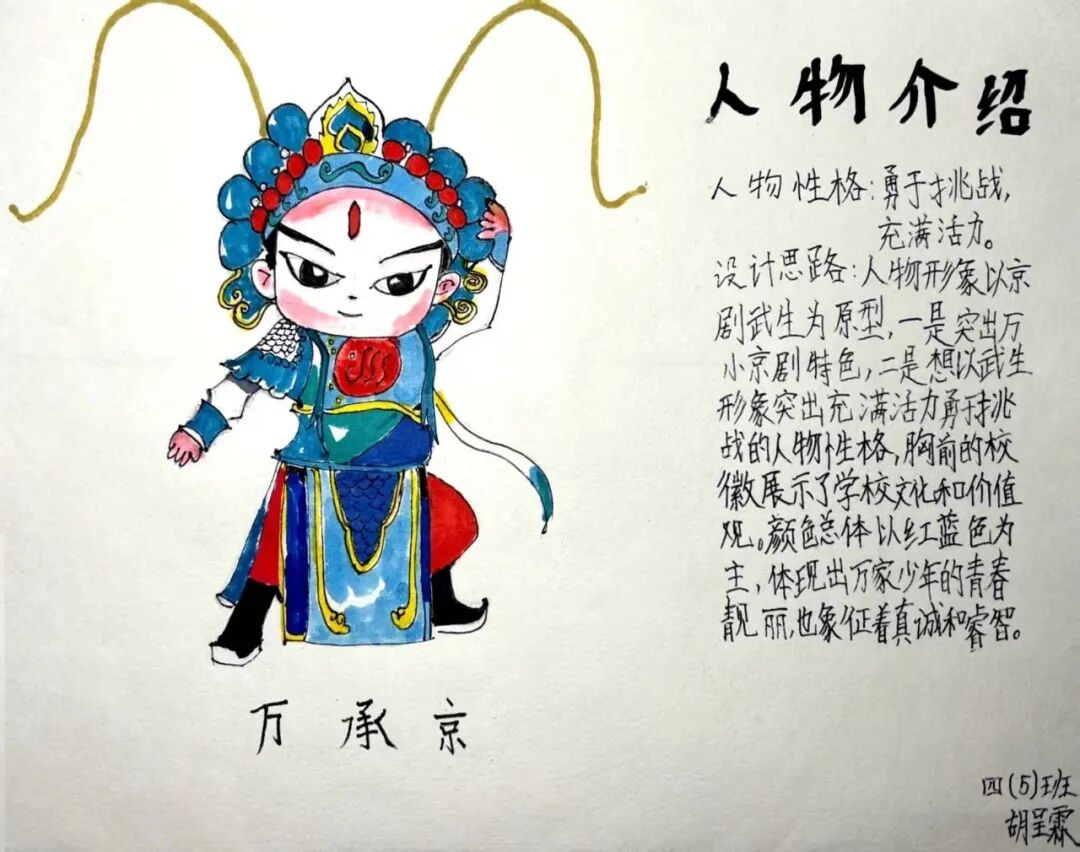 人物介绍
人物性格:勇于挑战,
充满活力。
设计思路:人物形象以京
剧武生为原型,一是突出万
小京剧特色,二是想以武生
形象突出充满活力勇于挑
战的人物性格,胸前的校
徽展示了学校文化和价值
观。颜色总体以红蓝色为
主,体现出万家少年的青春
靓丽,也象征着真诚和睿智。
万承京
四(5)班
胡呈霖